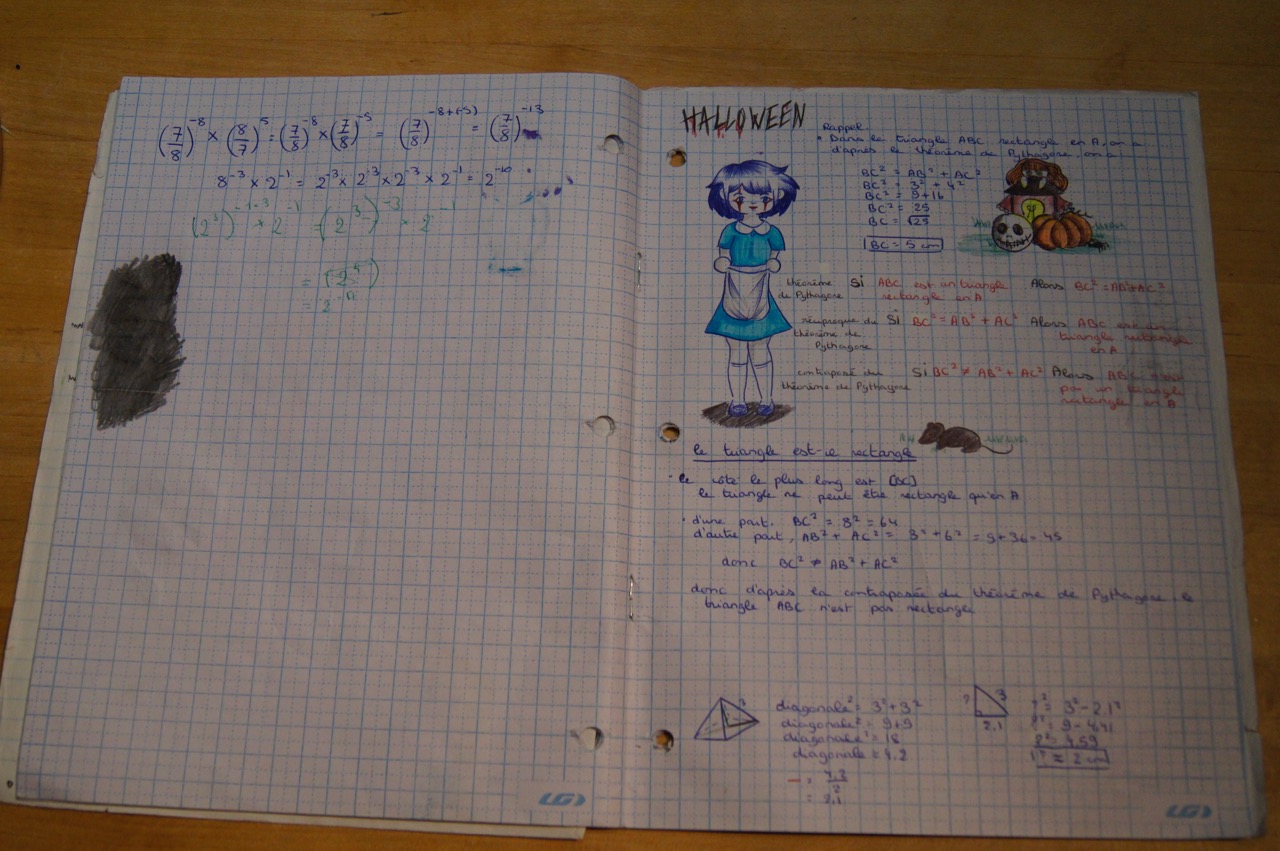 (7/8)^-8 × (8/7)^5 = (7/8)^-8 × (7/8)^-5 = (7/8)^-8+(-5) = (7/8)^-13
8^-3 × 2^-1 = 2^-3 × 2^-3 × 2^-3 × 2^-1 = 2^-10
LG
HALLOWEEN
Rappel
• Dans le triangle ABC rectangle en A, on a
d'après le théorème de Pythagore, on a
BC² = AB² + AC²
BC² = 3² + 4²
BC² = 9 + 16
BC² = 25
BC = √25
BC = 5 cm
théorème de Pythagore Si ABC est un triangle rectangle en A Alors BC² = AB² + AC²
réciproque du théorème de Pythagore Si BC² = AB² + AC² Alors ABC est un triangle rectangle en A
contraposé du théorème de Pythagore Si BC² ≠ AB² + AC² Alors ABC n'est pas un triangle rectangle en A
le triangle est-il rectangle
• le côté le plus long est [BC]
le triangle ne peut être rectangle qu'en A
• d'une part. BC² = 8² = 64
d'autre part, AB² + AC² = 3² + 6² = 9 + 36 = 45
donc BC² ≠ AB² + AC²
donc d'après la contraposée du théorème de Pythagore le
triangle ABC n'est pas rectangle
3
diagonale² = 3² + 3²
diagonale² = 9 + 9
diagonale² = 18
diagonale ≈ 4.2
= 2.1
? 3
2.1
?² = 3² - 2.1²
?² = 9 - 4.41
?² = 4.59
? ≈ 2 cm
LG